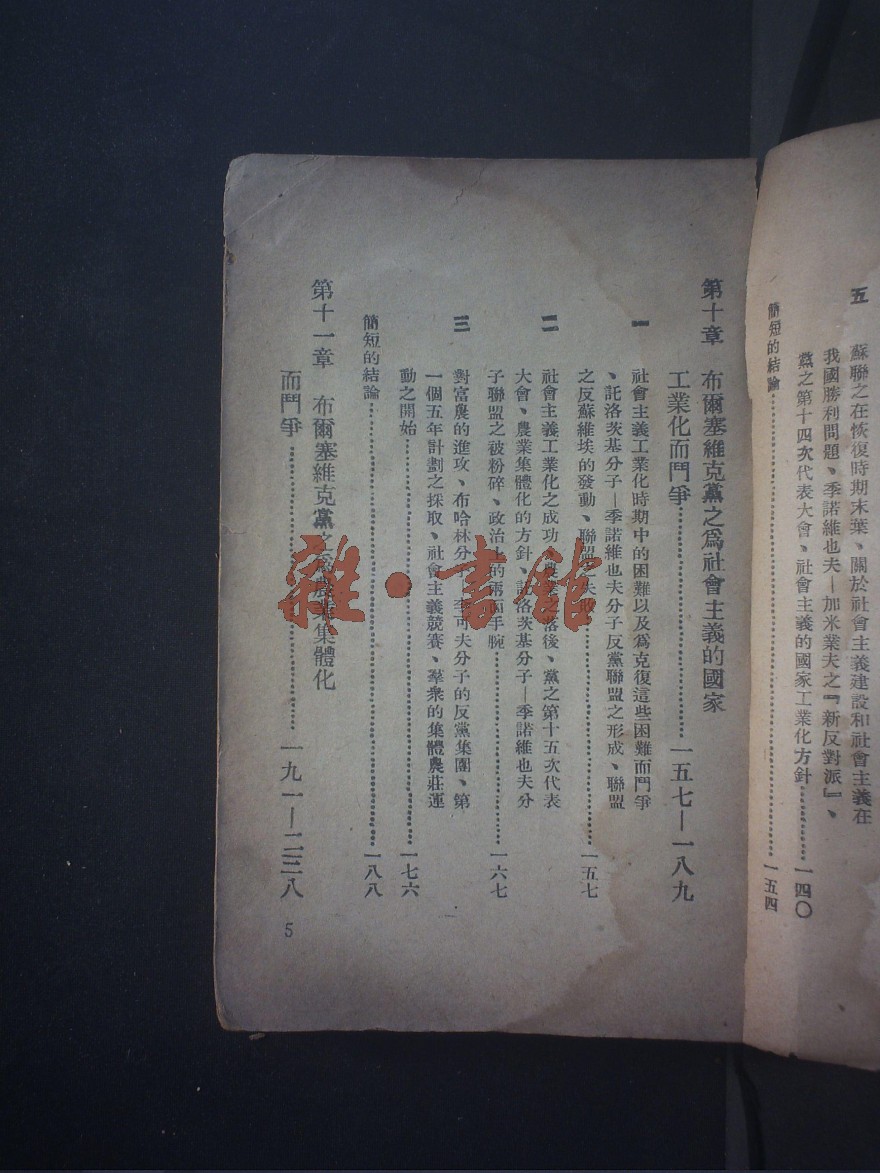 五 蘇聯之在恢復時期末葉、關於社會主義建設和社會主義在
我國勝利問題、季諾維也夫—加米業夫之『新反對派』、
黨之第十四次代表大會、社會主義的國家工業化方針…………一四〇
簡短的結論…………一五四
第十章 布爾塞維克黨之爲社會主義的國家
工業化而鬥爭…………一五七—一八九
一 社會主義工業化時期中的困難以及爲克復這些困難而鬥爭
、託洛茨基分子—季諾維也夫分子反黨聯盟之形成、聯盟
之反蘇維埃的發動、聯盟之失敗…………一五七
二 社會主義工業化之成功、農業之落後、黨之第十五次代表
大會、農業集體化的方針、託洛茨基分子—季諾維也夫分
子聯盟之被粉碎、政治上的兩面手腕…………一六七
三 對富農的進攻、布哈林分子、李可夫分子的反黨集團、第
一個五年計劃之採取、社會主義競賽、羣衆的集體農莊運
動之開始…………一七六
簡短的結論…………一八八
第十一章 布爾塞維克黨之爲農業集體化
而鬥爭…………一九一—二二八
5
雜·書館